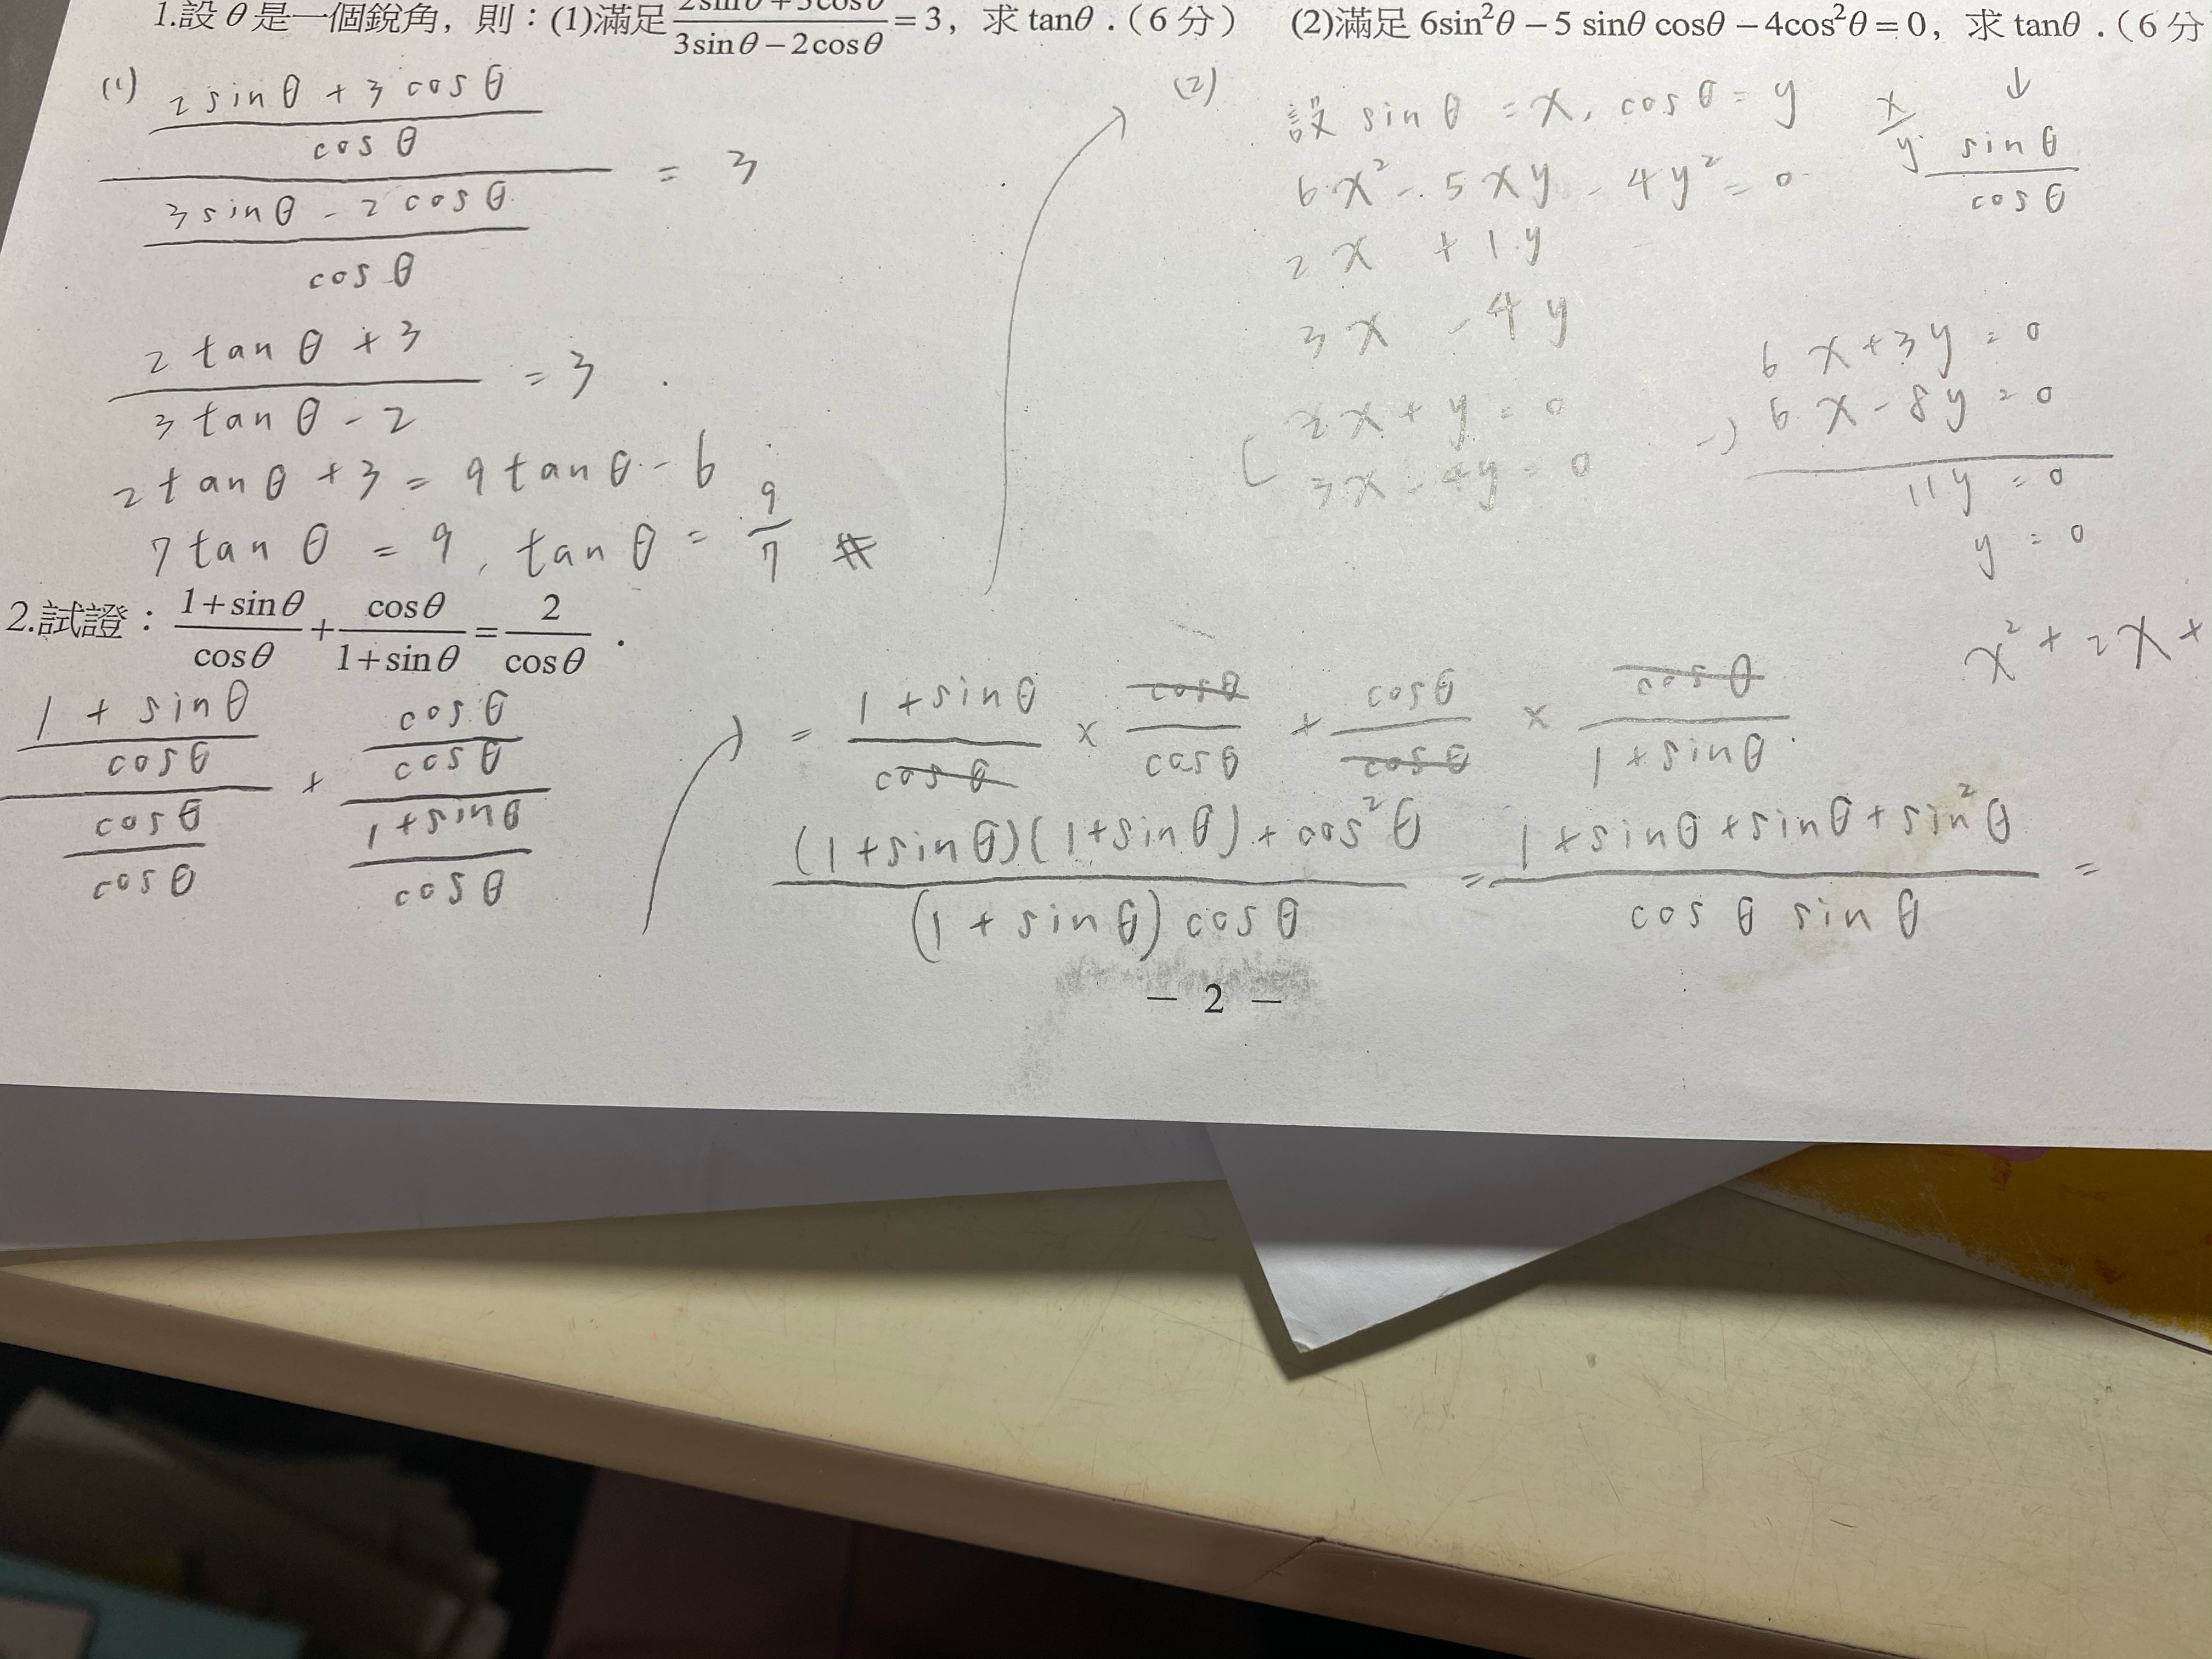 1.設θ是一個銳角，則：(1)滿足 (2sinθ+3cosθ)/(3sinθ−2cosθ)=3，求 tanθ．（6 分） (2)滿足 6sin²θ−5 sinθ cosθ−4cos²θ=0，求 tanθ．（6 分
(1) ((2sinθ+3cosθ)/cosθ)/((3sinθ-2cosθ)/cosθ) = 3
(2tanθ+3)/(3tanθ-2) = 3
2tanθ+3 = 9tanθ-6
7tanθ = 9, tanθ = 9/7 #
(2) 設 sinθ = x, cosθ = y
x/y
↓
sinθ/cosθ
6x²-5xy-4y²=0
2x +1y
3x -4y
2x+y=0
3x-4y=0
6x+3y=0
-) 6x-8y=0
11y=0
y=0
2.試證：(1+sinθ)/cosθ + cosθ/(1+sinθ) = 2/cosθ．
x²+2x+
((1+sinθ)/cosθ)/(cosθ/cosθ) + (cosθ/cosθ)/((1+sinθ)/cosθ)
= (1+sinθ)/cosθ × cosθ/cosθ + cosθ/cosθ × cosθ/(1+sinθ)
((1+sinθ)(1+sinθ)+cos²θ)/((1+sinθ)cosθ) = (1+sinθ+sinθ+sin²θ)/(cosθ sinθ) =
— 2 —